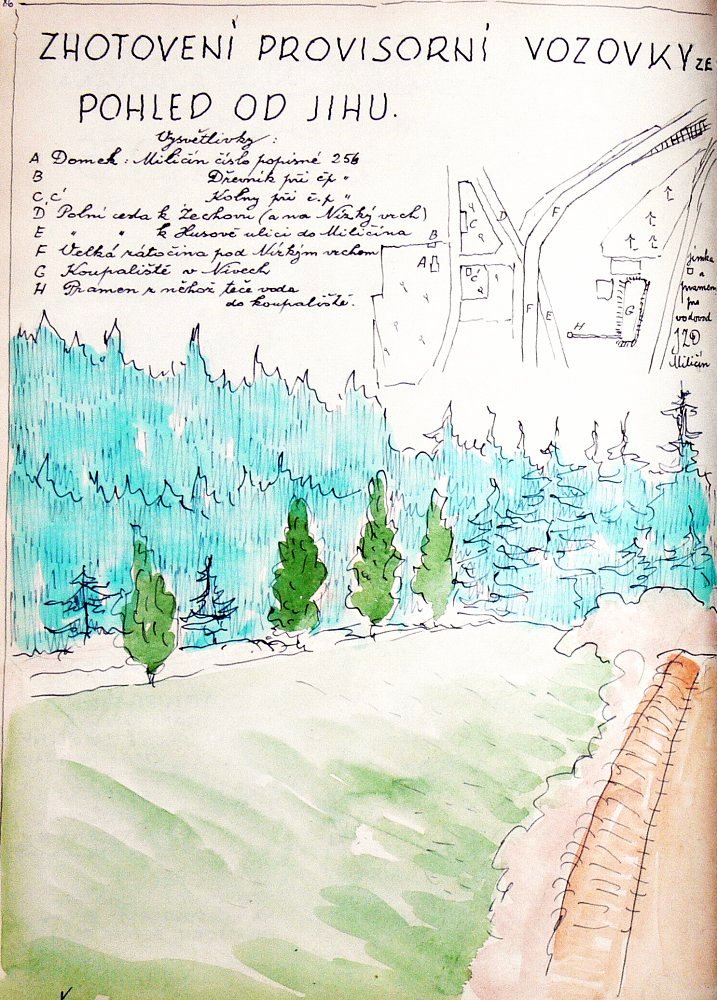 86
ZHOTOVENÍ PROVISORNÍ VOZOVKY ZE
POHLED OD JIHU.
Vysvětlivky:
A Domek: Miličín číslo popisné 256
B Dřevník při čp "
C, Ć Kolny při č.p "
D Polní cesta k Zechovu (a na Nízký vrch)
E " " k Husově ulici do Miličína
F Velká zátočina pod Nízkým vrchem
G Koupaliště v Nivech
H Pramen z něhož teče voda
do koupaliště.
B
A
C
Ć
D
F
F
E
H
G
jímka
a
pramen
pro
vodovod
JZD
Miličín